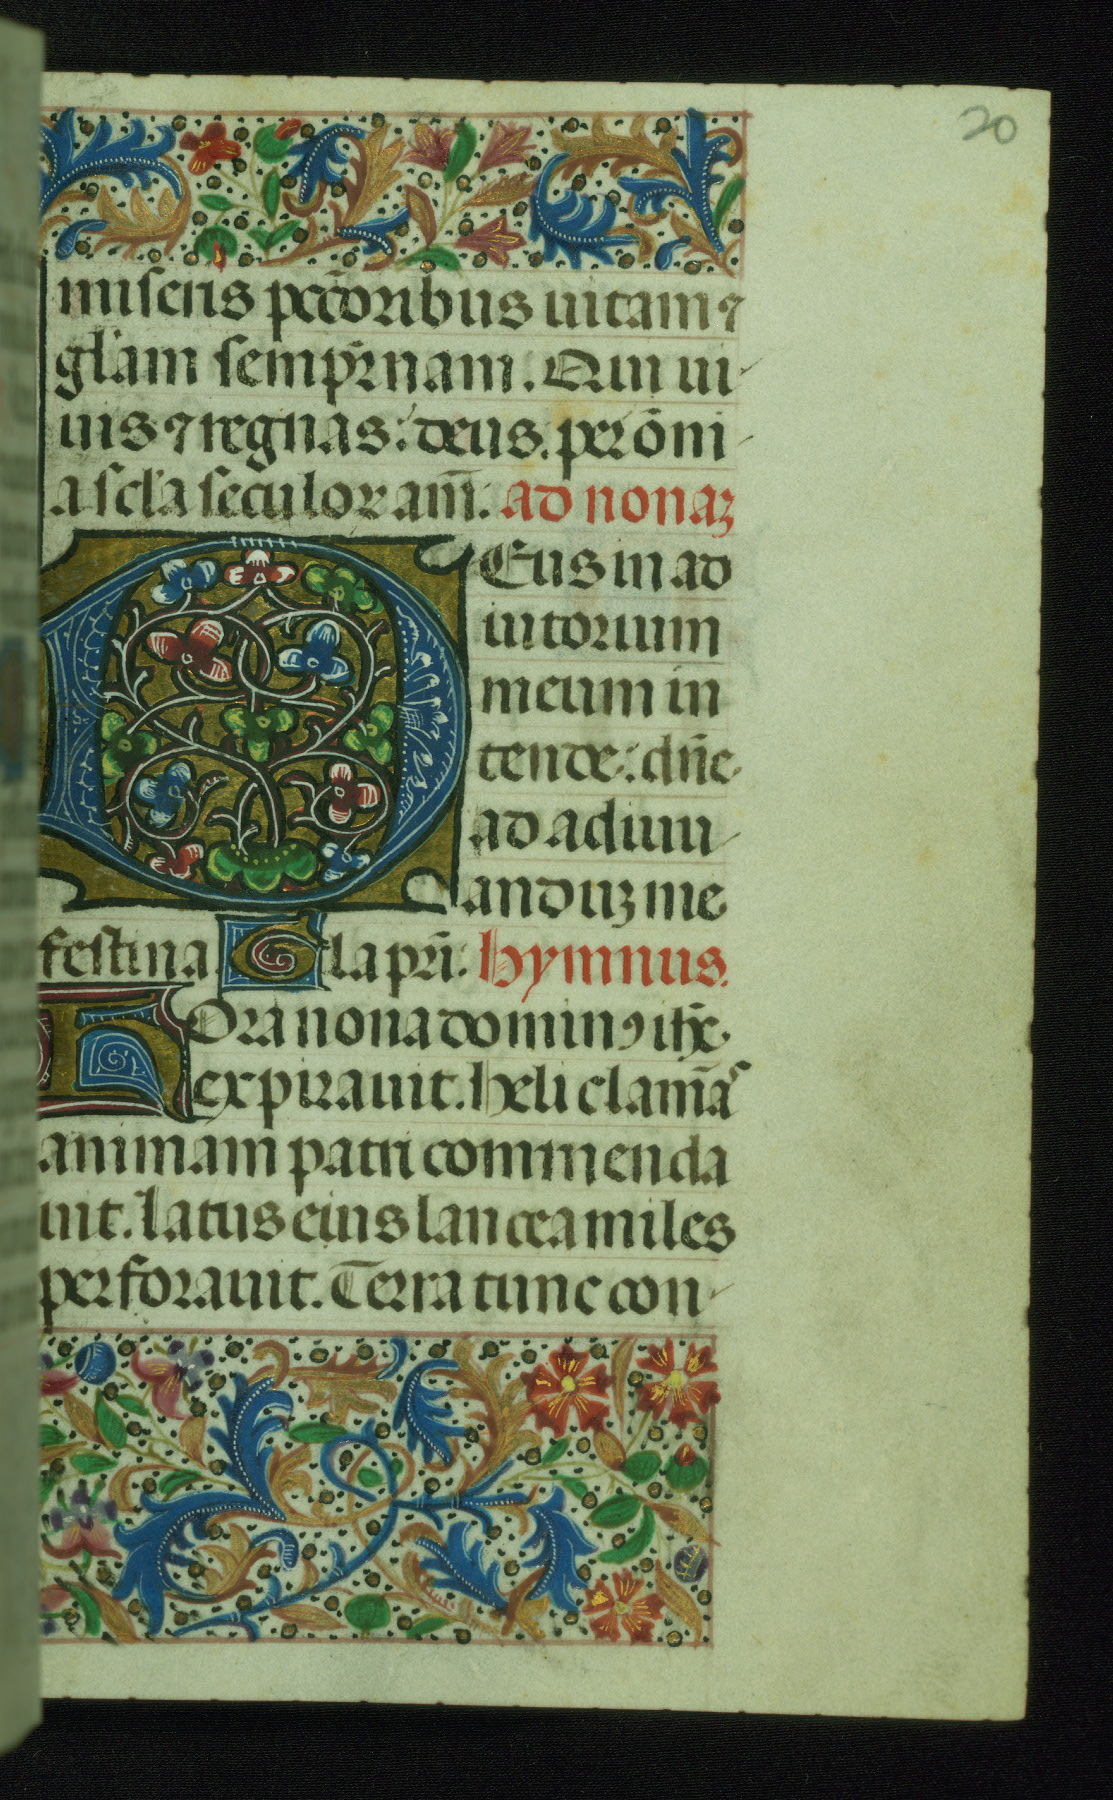 20
miseris pcc̄oribus uitam ⁊
gl̄am semp̄rnam. Qui ui-
uis ⁊ regnas: deus. per ōni-
a scl̄a seculor am̄. ad nonaꝫ
DEus in ad
iutorium
meum in
tende: dn̄e
ad adiuu-
anduꝫ me
festina Gla pr̄i. hymnus.
Hora nona dominꝰ ihc̄
expirauit. heli clamās
animam patri commenda
uit. latus eius lancea miles
perforauit. Terra tunc con-